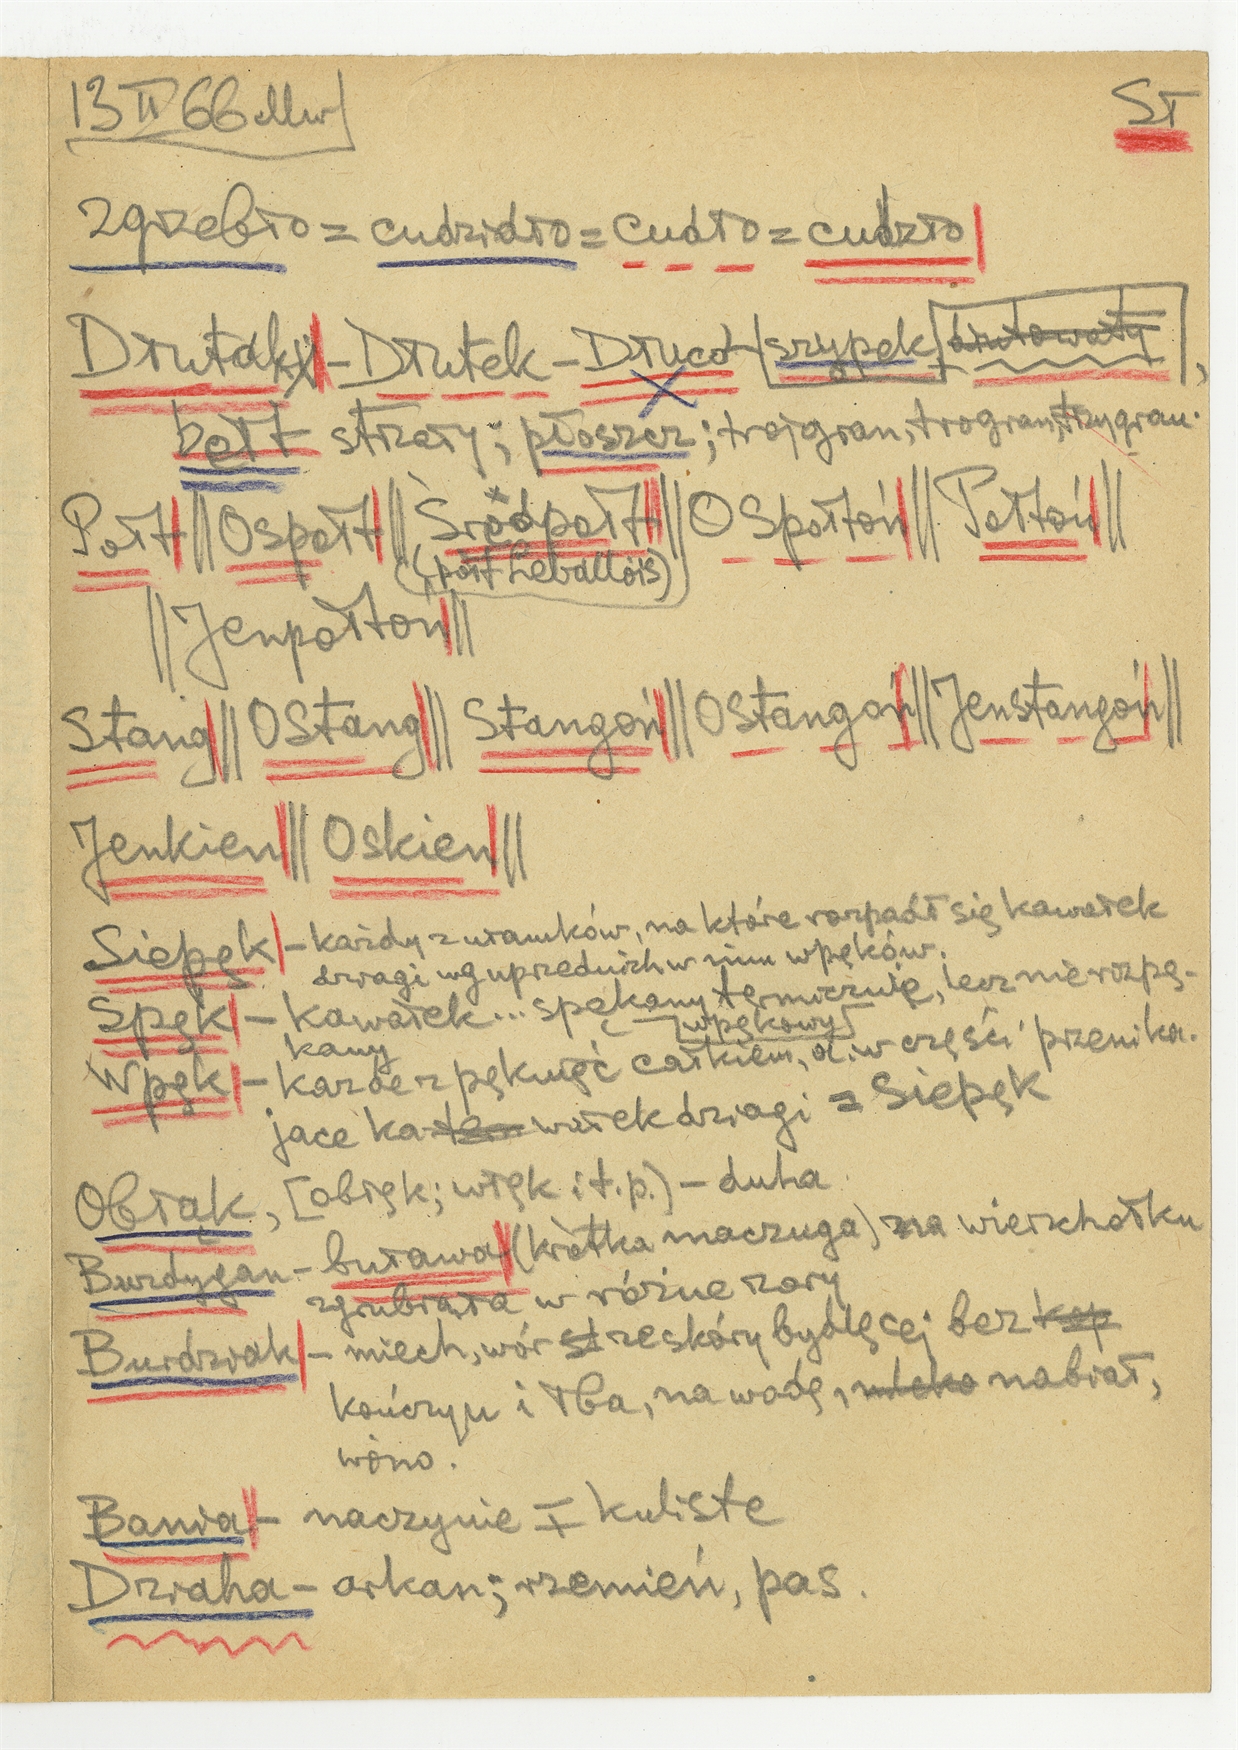 13 II 66 Mw
ST
zgrzebło = cudzidło = cudło = cudzło
Drutak – Drutek – szypek drutowaty,
bełt strzały; płoszcz; trójgran, trogran, trzygran.
Połt || Ospołt || Śródpołt || Ospołtoń || Połtoń ||
(połt Levallois)
|| Jenpołtoń ||
Stang || Ostang || Stangoń || Ostangoń || Jenstangoń ||
Jenkien || Oskien ||
Siepęk – każdy z ułamków, na które rozpadł się kawałek
dziagi wg uprzednich w nim wpęków.
Spęk – kawałek... spękany termicznie, lecz nie rozpę-
kany
wpękowy
Wpęk – każde zpęknięć całkiem, a. w części przenika-
jące ka wałek dziagi = Siepęk
Obłąk, [obłęk; włęk i t.p.) – duha
Burdygan – buława (krótka maczuga) na wierzchołku
zgrubiała w różne zory
Burdziak – miech, wór ze skóry bydlęcej bez
kończyn i łba, na wodę, mleko nabiał,
wino.
Bania – naczynie ∓ kuliste
Dziaha – arkan; rzemień, pas.